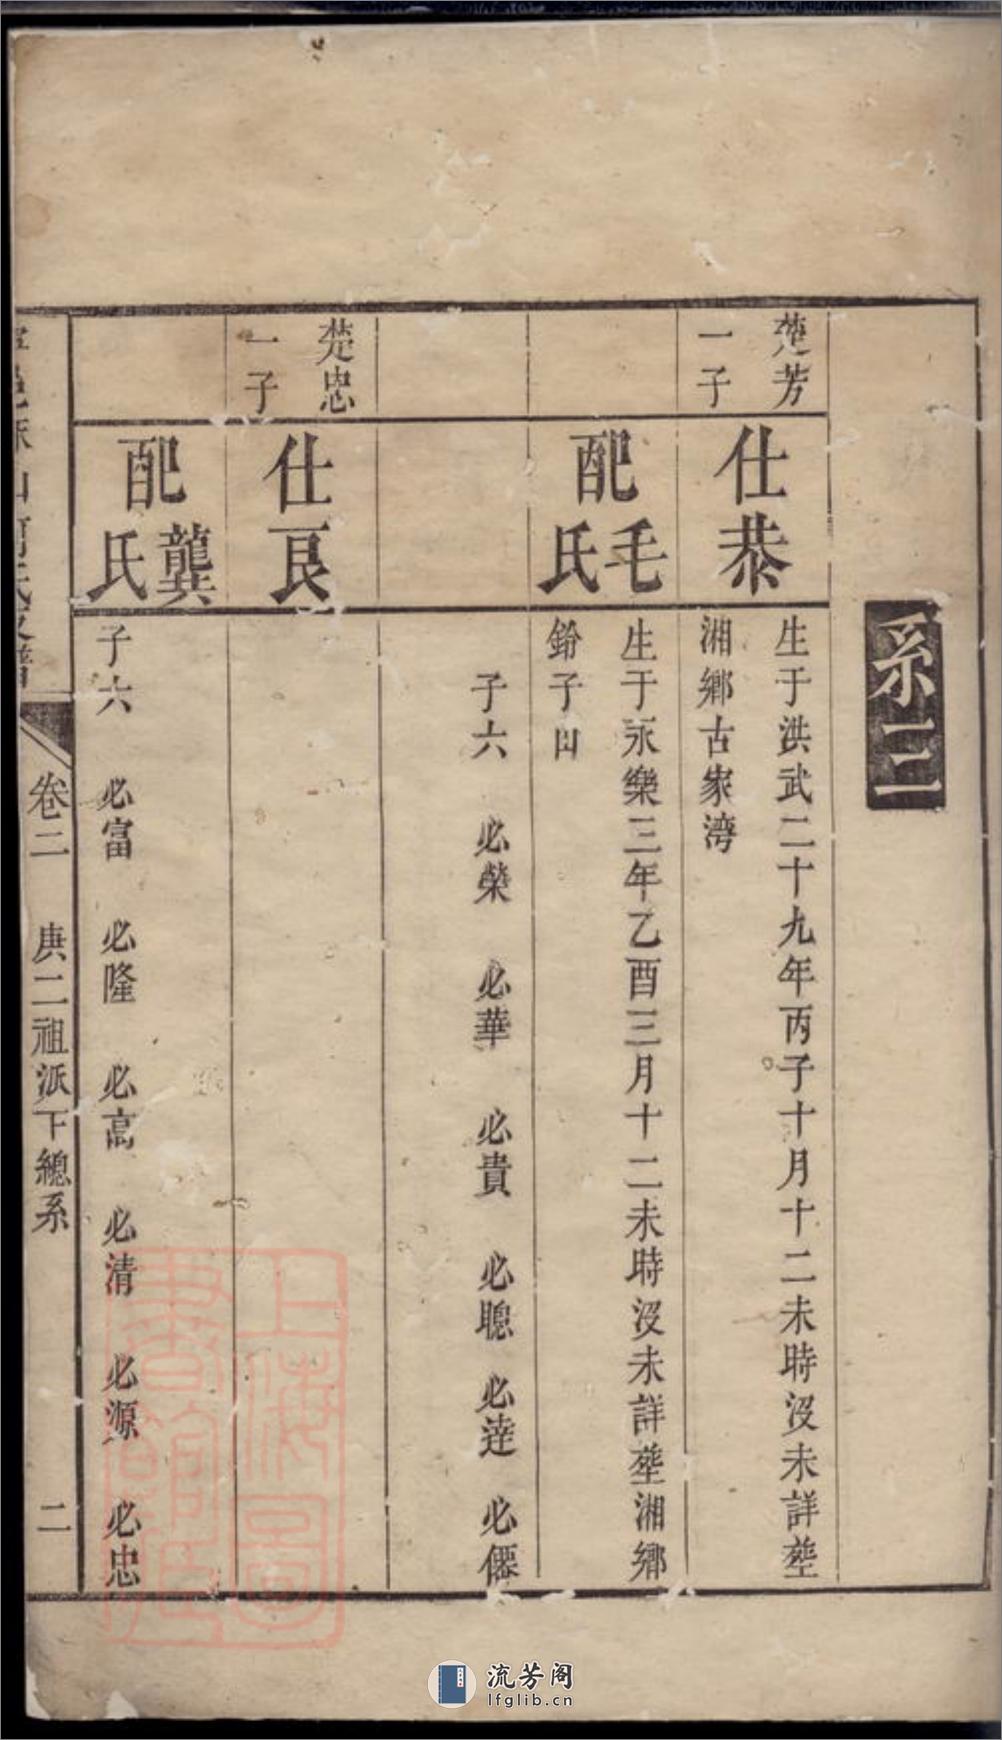 系三
楚芳
一子
仕恭
生于洪武二十九年丙子十月十二未時沒未詳塟
湘鄉古家湾
配毛氏
生于永樂三年乙酉三月十二未時沒未詳塟湘鄉
子
子六 必榮 必華 必貴 必聰 必達 必僊
楚忠
一子
仕良
配龔氏
子六 必富 必隆 必高 必清 必源 必忠
卷二 庚二祖派下總系 二
上海圖
書館藏
流芳阁
lfglib.cn